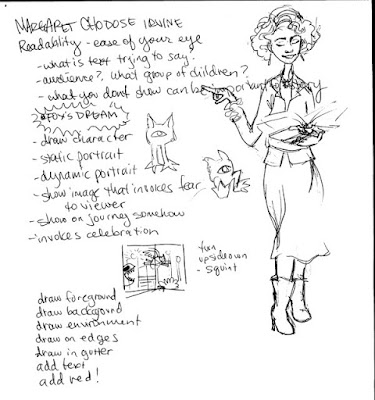 MARGARET CHODOSE IRVINE
Readability - ease of your eye
- what is text trying to say.
- audience?, what group of children?
- what you dont show can be important to story
FOX'S DREAM
- draw character
- static portrait
- dynamic portrait
- show image that invokes fear
to viewer
- show on journey somehow
- invokes celebration
turn
upsidedown
- squint
draw foreground
draw background
draw environment
draw on edges
draw in gutter
add text
add red!